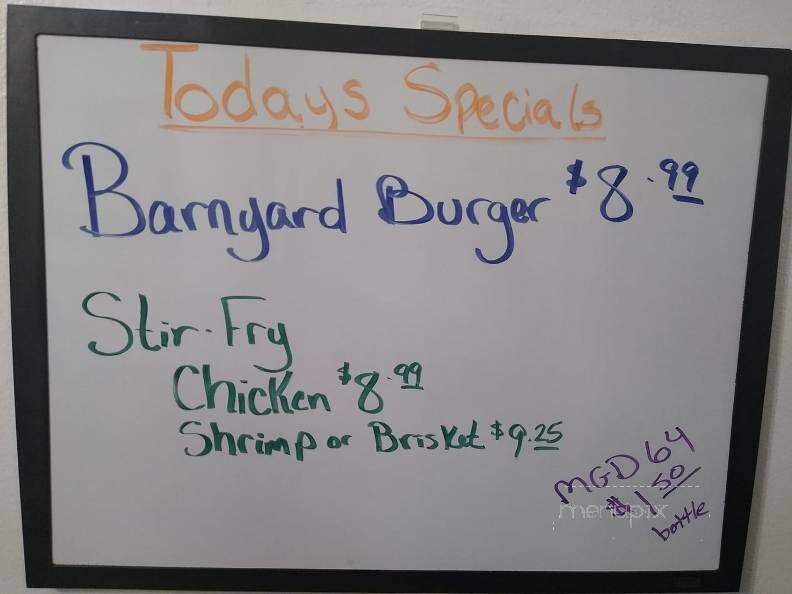 Todays Specials
Barnyard Burger $8.99
Stir-Fry
Chicken $8.99
Shrimp or Brisket $9.25
MGD 64
$1.50
bottle
menupix